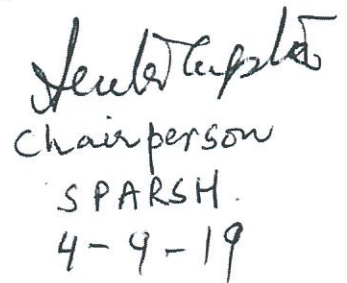 Gupta
Chairperson
SPARSH.
4-9-19